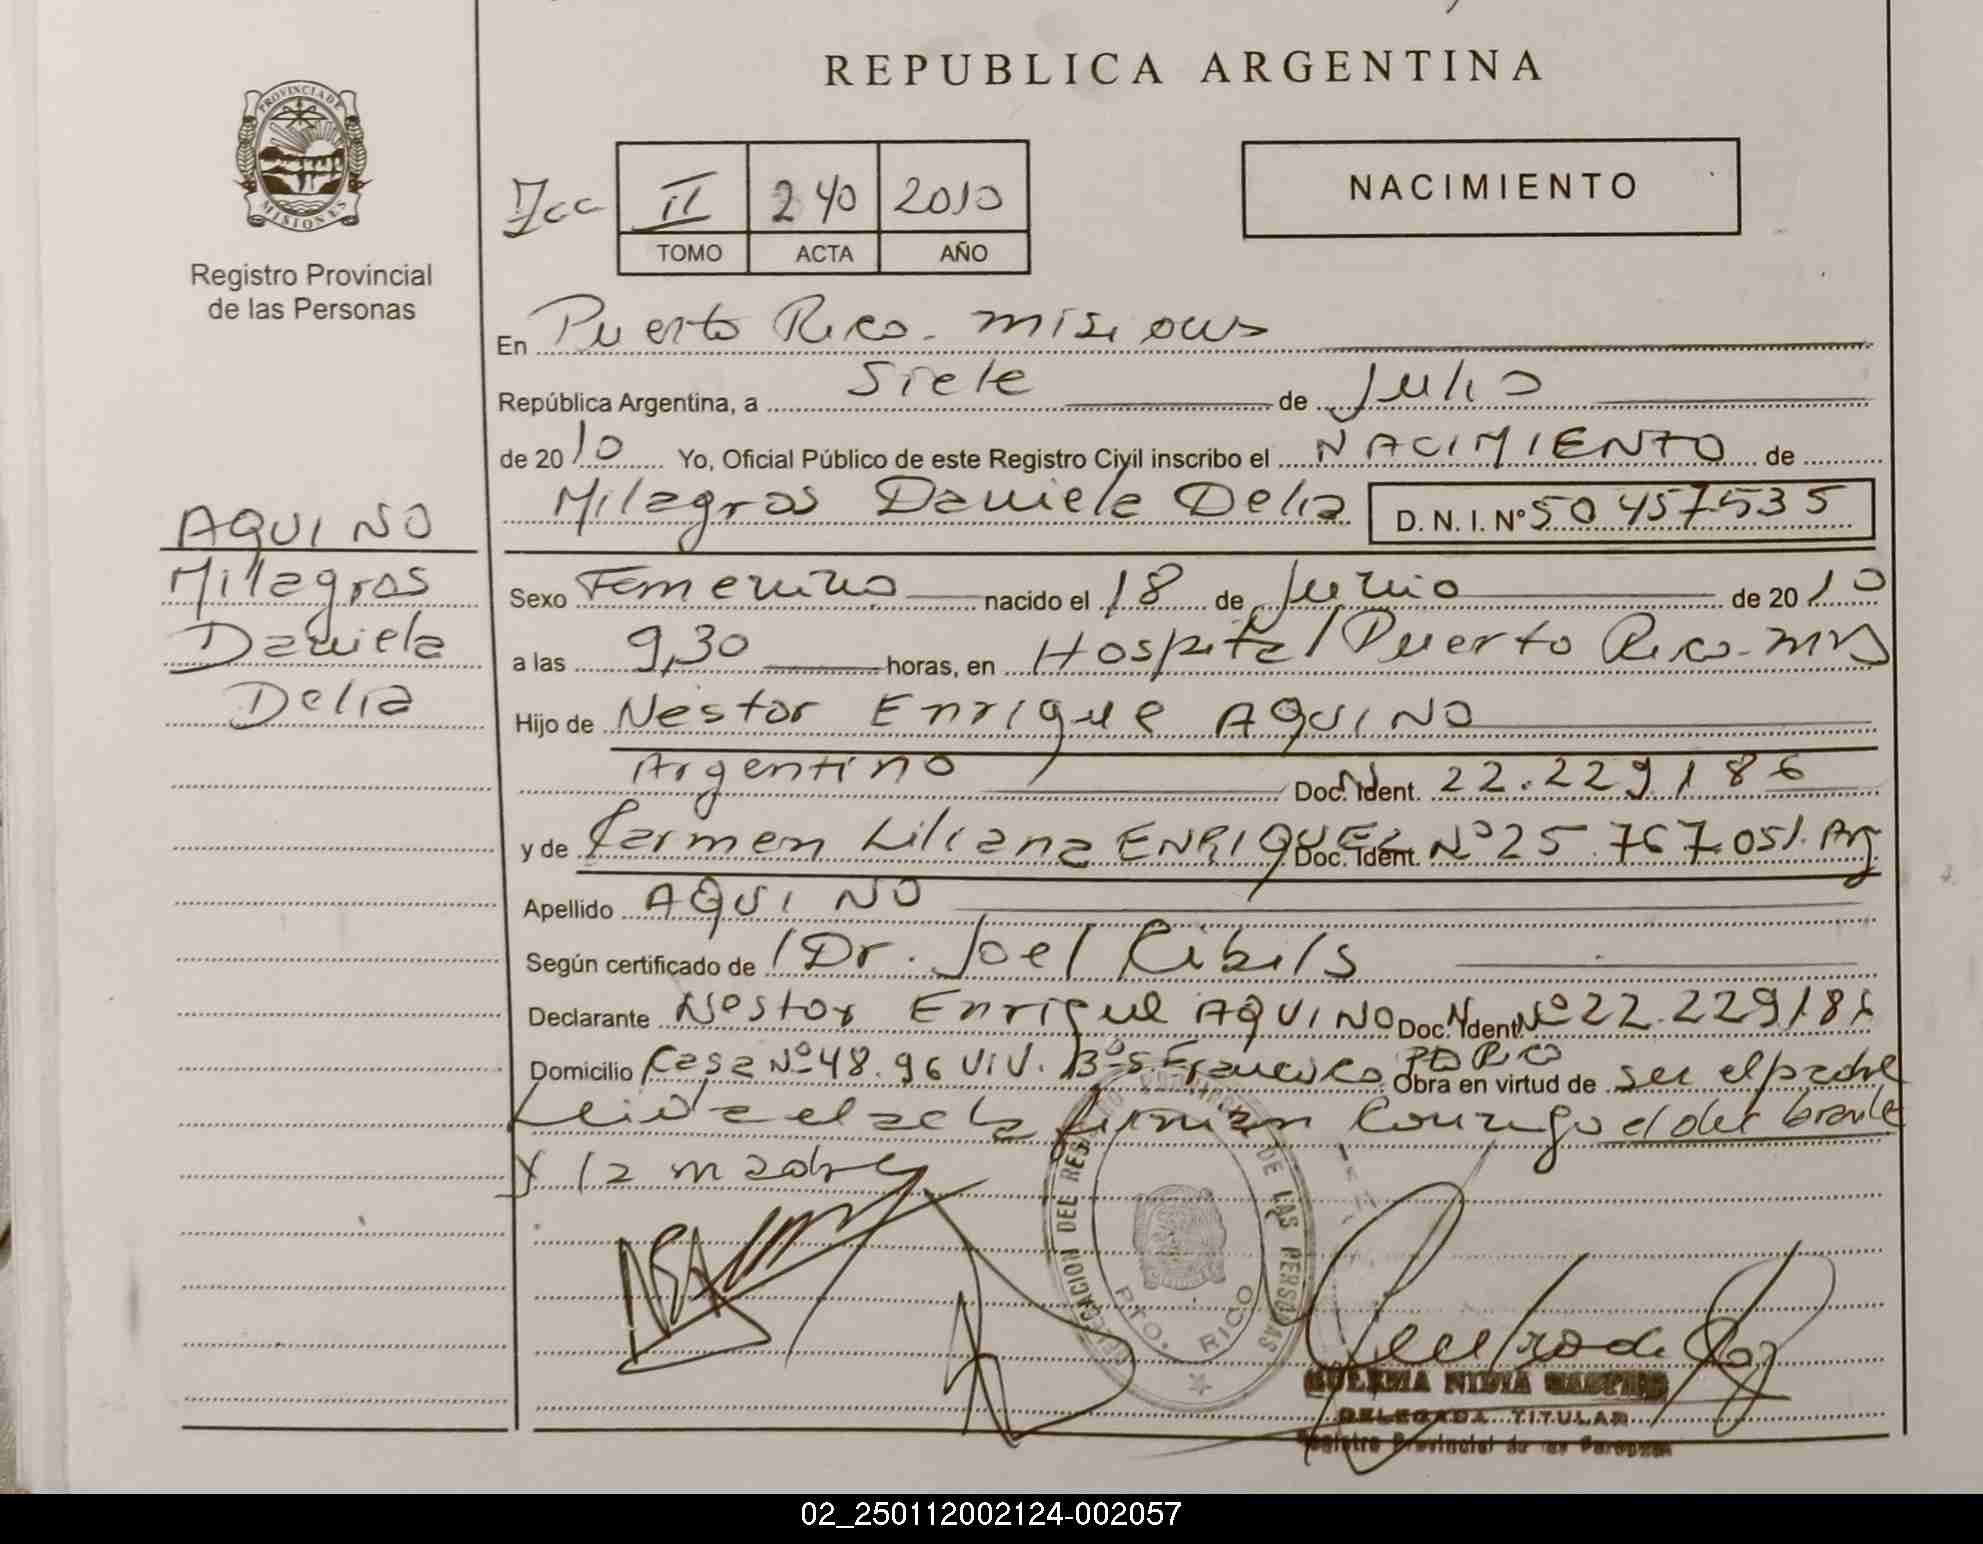 REPUBLICA ARGENTINA
PROVINCIA DE
MISIONES
Registro Provincial
de las Personas
II 240 2010
TOMO ACTA AÑO
NACIMIENTO
En Puerto Rico - Misiones
República Argentina, a Siete de Julio
de 2010 Yo, Oficial Público de este Registro Civil inscribo el NACIMIENTO de
Milagros Daniela Delia D. N. I. Nº 50457535
AQUINO
Milagros
Daniela
Delia
Sexo Femenino nacido el 18 de Junio de 2010
a las 9,30 horas, en Hospital Puerto Rico - Mns
Hijo de Nestor Enrique AQUINO
Argentino Doc. Ident. 22.229.186
y de Carmen Liliana ENRIQUEZ Doc. Ident. Nº 25.767.051. Arg
Apellido AQUINO
Según certificado de Dr. Joel Ribils
Declarante Nestor Enrique AQUINO Doc. Ident. Nº 22.229.186
Domicilio Casa Nº 48. 96 VIV. Bº S. Francisco Pto Rico Obra en virtud de ser el padre
Leida el acta firman conmigo el declarante
y la madre
DELEGACION DEL REGISTRO DE LAS PERSONAS
PTO. RICO
NIDIA
DELEGADA TITULAR
Registro Provincial de las Personas
02_250112002124-002057